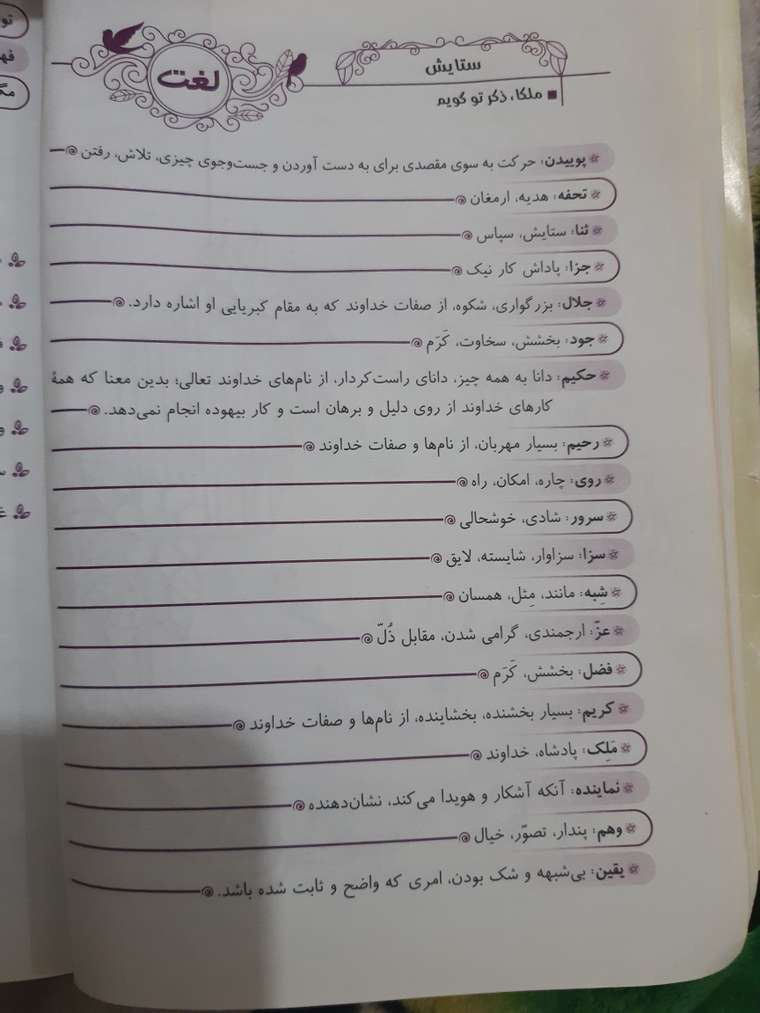 ستایش
لغت
ملکا، ذکر تو گویم
پوییدن: حرکت به سوی مقصدی برای به دست آوردن و جست‌وجوی چیزی، تلاش، رفتن
تحفه: هدیه، ارمغان
ثنا: ستایش، سپاس
جزا: پاداش کار نیک
جلال: بزرگواری، شکوه، از صفات خداوند که به مقام کبریایی او اشاره دارد.
جود: بخشش، سخاوت، کَرَم
حکیم: دانا به همه چیز، دانای راست‌کردار، از نام‌های خداوند تعالی؛ بدین معنا که همهٔ
کارهای خداوند از روی دلیل و برهان است و کار بیهوده انجام نمی‌دهد.
رحیم: بسیار مهربان، از نام‌ها و صفات خداوند
روی: چاره، امکان، راه
سرور: شادی، خوشحالی
سزا: سزاوار، شایسته، لایق
شِبه: مانند، مِثل، همسان
عزّ: ارجمندی، گرامی شدن، مقابل ذُلّ
فضل: بخشش، کَرَم
کریم: بسیار بخشنده، بخشاینده، از نام‌ها و صفات خداوند
مَلِک: پادشاه، خداوند
نماینده: آنکه آشکار و هویدا می‌کند، نشان‌دهنده
وهم: پندار، تصوّر، خیال
یقین: بی‌شبهه و شک بودن، امری که واضح و ثابت شده باشد.